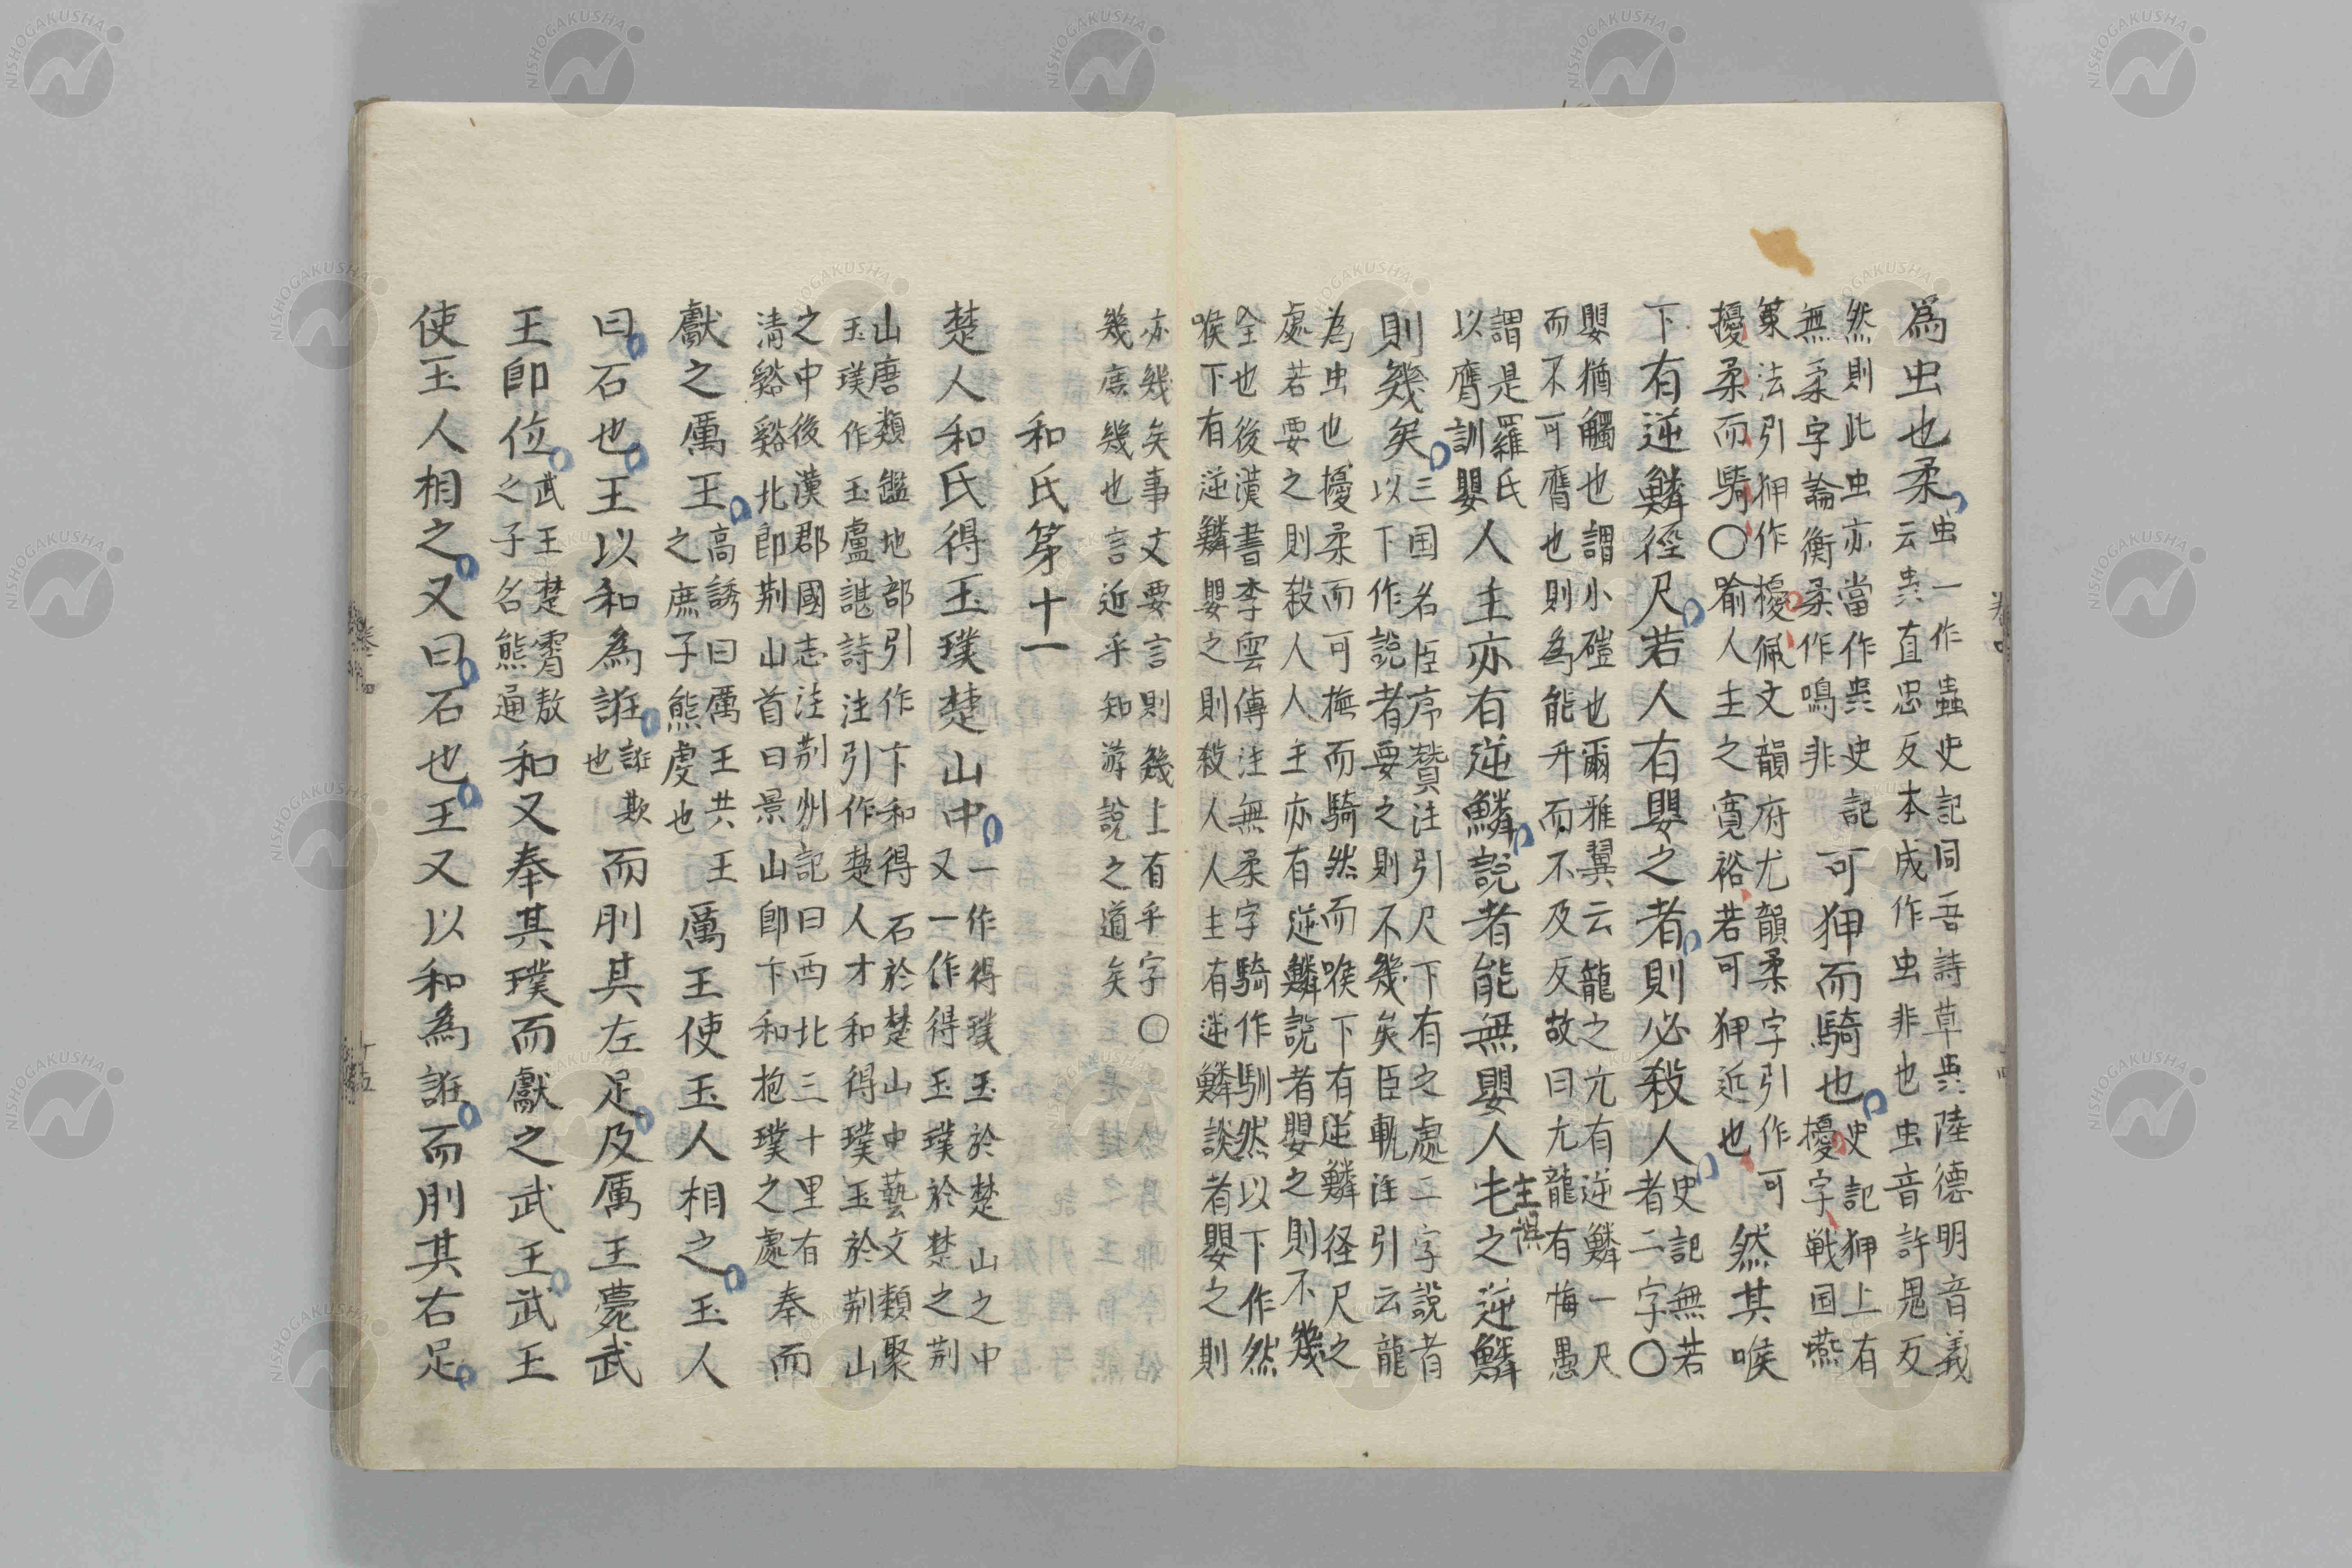 為虫也柔
虫一作蟲史記同吾詩草蚩陸德明音義
云蚩直忠反本成作虫非也虫音許鬼反
然則此虫亦當作蚩史記
無柔字論衡柔作鳴非
可狎而騎也
史記狎上有
擾字戦国燕
策法引狎作擾佩文韻府尤韻柔字引作可
擾柔而騎○喻人主之寛裕若可狎近也
然其喉
下有逆鱗徑尺若人有嬰之者則必殺人
史記無若
者二字○
嬰猶觸也謂小磑也爾雅翼云龍之亢有逆鱗一尺
而不可膺也則為能升而不及反故曰亢龍有悔愚
謂是羅氏
以膺訓嬰
人主亦有逆鱗説者能無嬰人主之逆鱗
主誤
則幾矣
三国名臣序賛注引尺下有之處二字説者
以下作説者要之則不幾矣臣軌注引云龍
為虫也擾柔而可撫而騎然而喉下有逆鱗径尺之
處若要之則殺人人主亦有逆鱗説者嬰之則不幾
全也後漢書李雲傳注無柔字騎作馴然以下作然
喉下有逆鱗嬰之則殺人人主有逆鱗談者嬰之則
亦幾矣事文要言則幾上有乎字○
幾庶幾也言近乎知游説之道矣
和氏第十一
楚人和氏得玉璞楚山中
一作得璞玉於楚山之中
又一作得玉璞於楚之荊
山唐類鑑地部引作卞和得石於楚山中藝文類聚
玉璞作玉盧諶詩注引作楚人才和得璞玉於荊山
之中後漢郡國志注荊州記曰西北三十里有
清谿谿北即荊山首曰景山即卞和抱璞之處
奉而
獻之厲王
高誘曰厲王共王
之庶子熊虔也
厲王使玉人相之玉人
曰石也王以和為誑
誑欺
也
而刖其左足及厲王薨武
王即位
武王楚霄敖
之子名熊通
和又奉其璞而獻之武王武王
使玉人相之又曰石也王又以和為誑而刖其右足